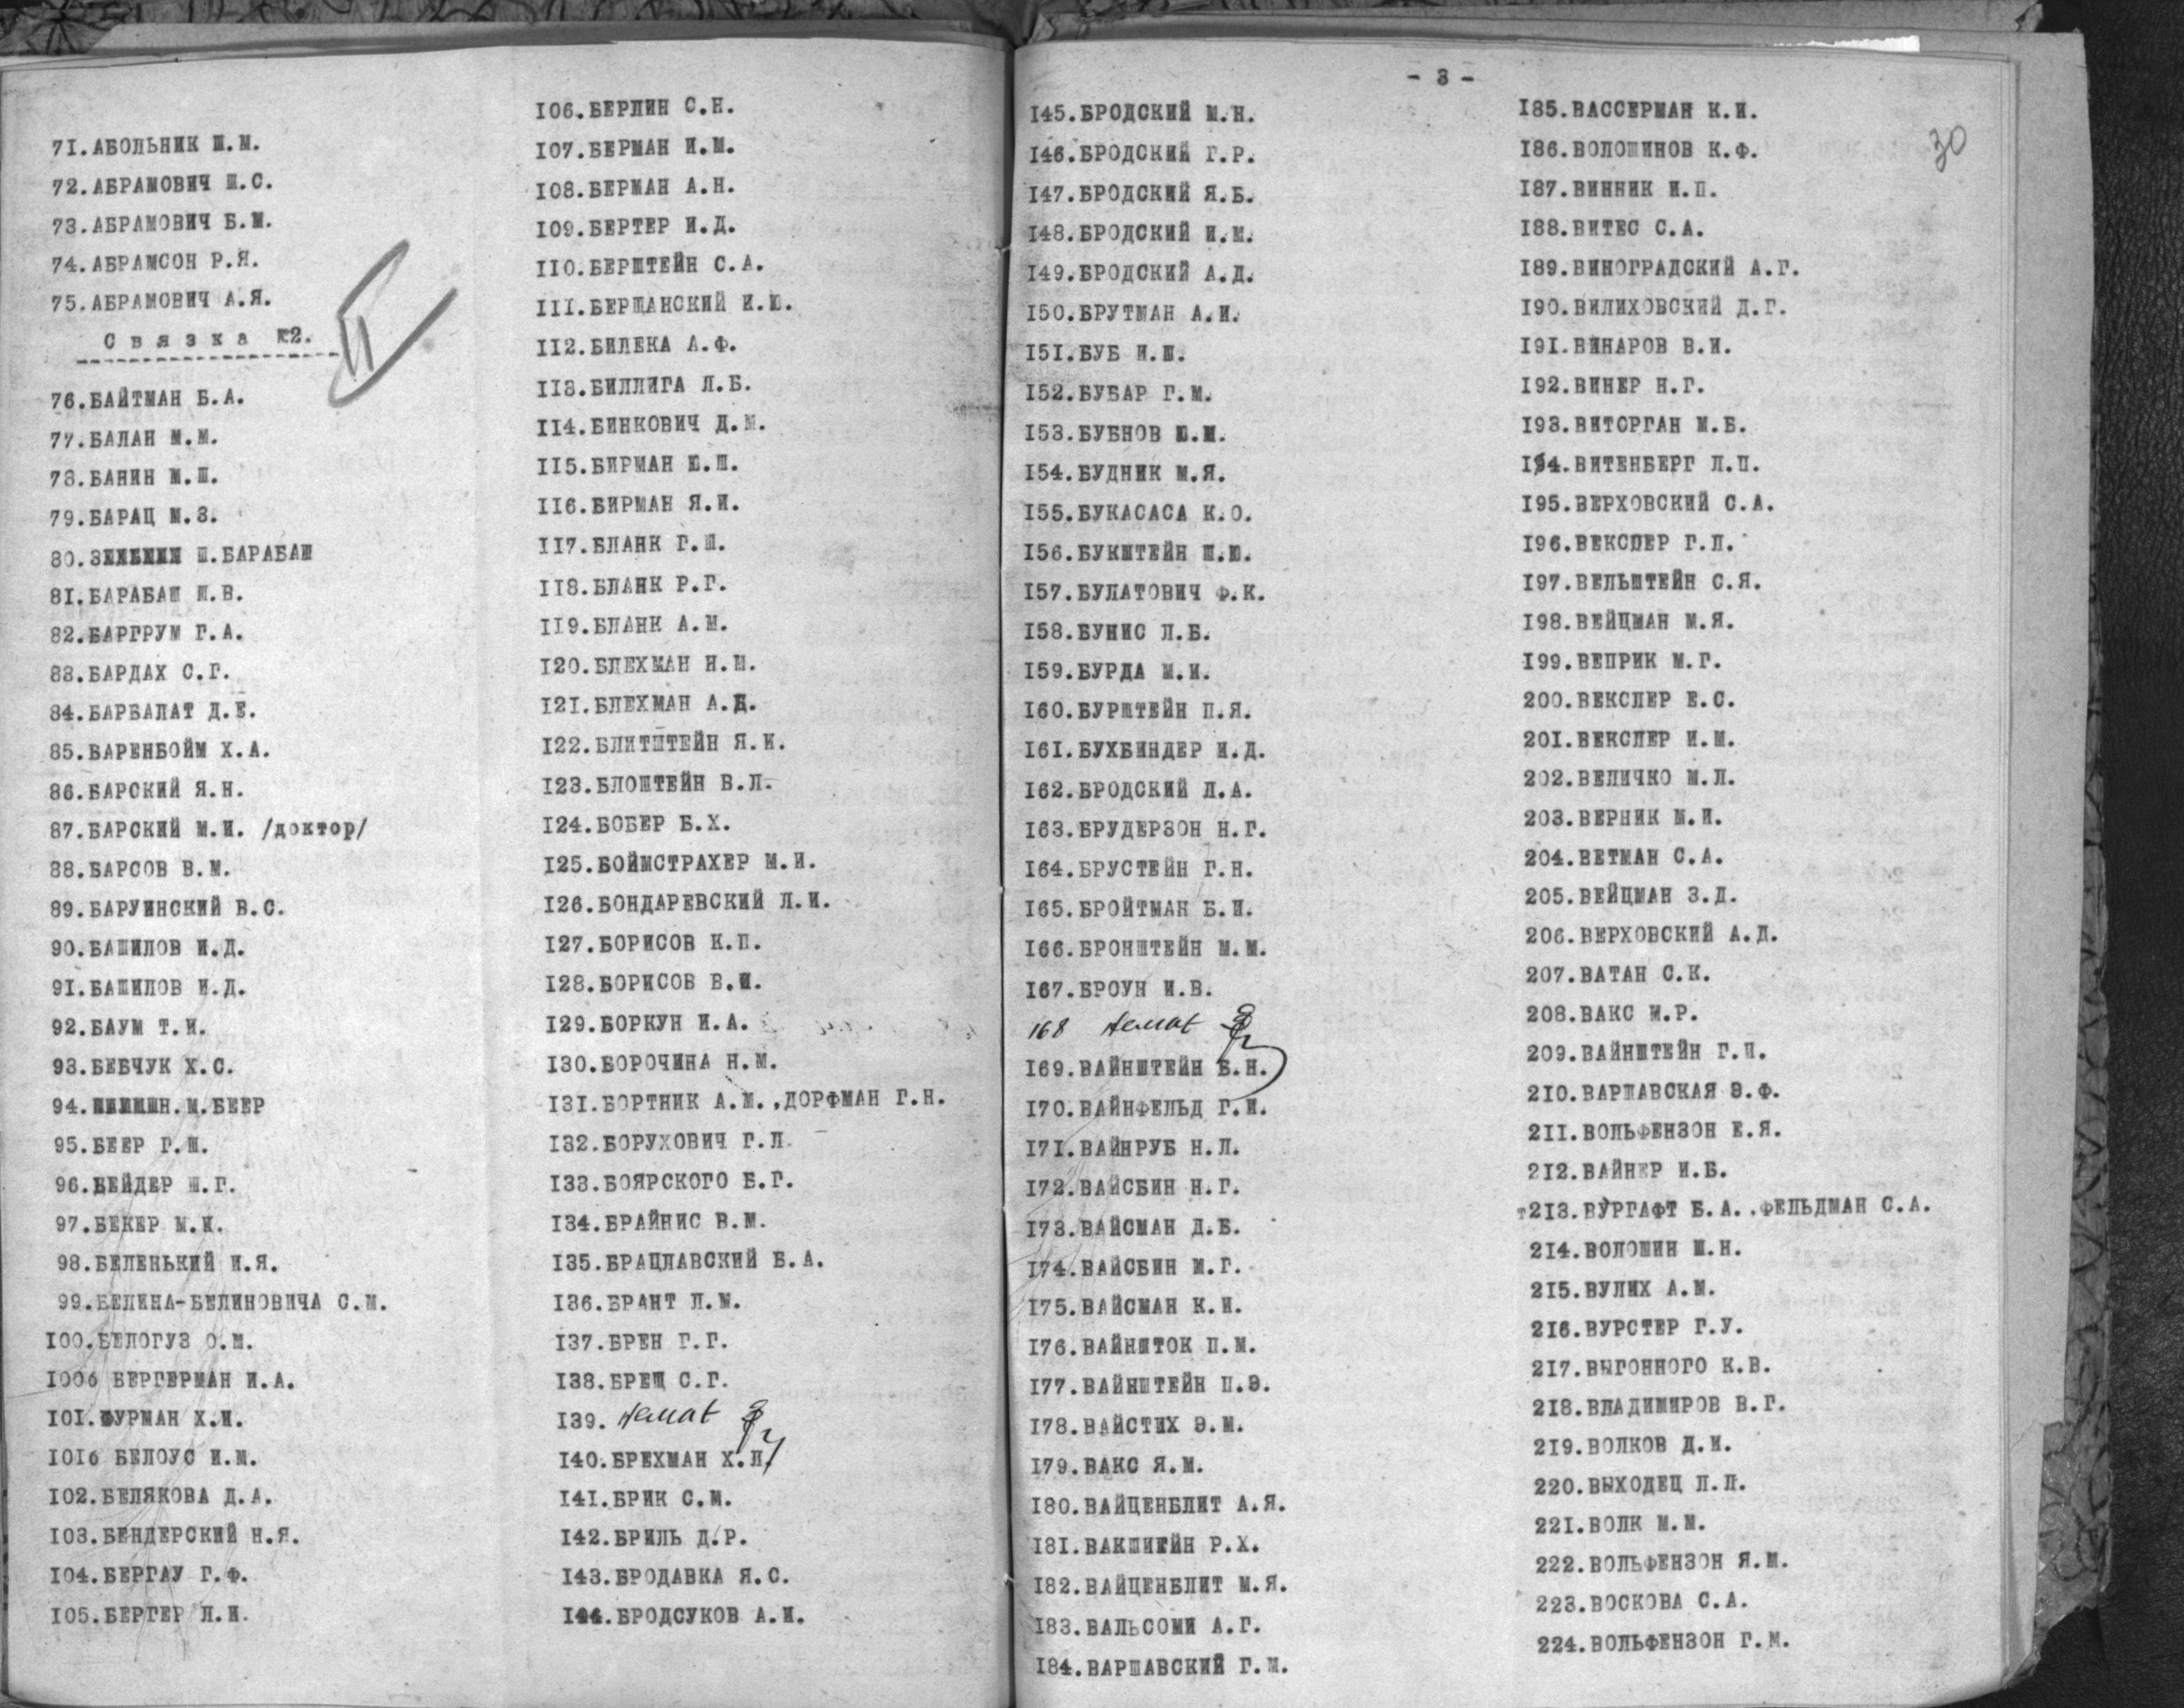 71.АБОЛЬНИК Ш.М.
72.АБРАМОВИЧ Ш.С.
73.АБРАМОВИЧ Б.М.
74.АБРАМСОН Р.Я.
75.АБРАМОВИЧ А.Я.
Связка №2.
II
76.БАЙТМАН Б.А.
77.БАЛАН М.М.
78.БАНИН М.Ш.
79.БАРАЦ М.З.
80. Ш.БАРАБАШ
81.БАРАБАШ Ш.В.
82.БАРГРУМ Г.А.
83.БАРДАХ С.Г.
84.БАРБАЛАТ Д.Е.
85.ВАРЕНБОЙМ Х.А.
86.БАРСКИЙ Я.Н.
87.БАРСКИЙ М.И. /доктор/
88.БАРСОВ В.М.
89.БАРУИНСКИЙ В.С.
90.БАШИЛОВ И.Д.
91.БАШИЛОВ И.Д.
92.БАУМ Т.И.
93.БЕБЧУК Х.С.
94. Н.М.БЕЕР
95.БЕЕР Г.Ш.
96.БЕЙДЕР Ш.Г.
97.БЕКЕР М.И.
98.БЕЛЕНЬКИЙ И.Я.
99.БЕЛИНА-БЕЛИНОВИЧА С.М.
100.БЕЛОГУЗ О.М.
100б БЕРГЕРМАН И.А.
101.ФУРМАН Х.И.
101б БЕЛОУС И.М.
102.БЕЛЯКОВА Д.А.
103.БЕНДЕРСКИЙ Н.Я.
104.БЕРГАУ Г.Ф.
105.БЕРГЕР Л.И.
106.БЕРЛИН С.Н.
107.БЕРМАН И.М.
108.БЕРМАН А.Н.
109.БЕРТЕР И.Д.
110.БЕРШТЕЙН С.А.
111.БЕРЩАНСКИЙ И.Ю.
112.БИЛЕКА А.Ф.
113.БИЛЛИГА Л.Б.
114.БИНКОВИЧ Д.М.
115.БИРМАН Ю.Ш.
116.БИРМАН Я.И.
117.БЛАНК Г.Ш.
118.БЛАНК Р.Г.
119.БЛАНК А.М.
120.БЛЕХМАН Н.Ш.
121.БЛЕХМАН А.Д.
122.БЛИТШТЕЙН Я.И.
123.БЛОШТЕЙН В.Л.
124.БОБЕР Б.Х.
125.БОЙМСТРАХЕР М.И.
126.БОНДАРЕВСКИЙ Л.И.
127.БОРИСОВ К.П.
128.БОРИСОВ В.И.
129.БОРКУН И.А.
130.БОРОЧИНА Н.М.
131.БОРТНИК А.М.,ДОРФМАН Г.Н.
132.БОРУХОВИЧ Г.Л.
133.БОЯРСКОГО Б.Г.
134.БРАЙНИС В.М.
135.БРАЦЛАВСКИЙ Б.А.
136.БРАНТ Л.М.
137.БРЕН Г.Г.
138.БРЕЩ С.Г.
139.
140.БРЕХМАН Х.Л.
141.БРИК С.М.
142.БРИЛЬ Д.Р.
143.БРОДАВКА Я.С.
144.БРОДСУКОВ А.И.
- 3 -
30
145.БРОДСКИЙ М.Н.
146.БРОДСКИЙ Г.Р.
147.БРОДСКИЙ Я.Б.
148.БРОДСКИЙ И.М.
149.БРОДСКИЙ А.Д.
150.БРУТМАН А.И.
151.БУБ И.Ш.
152.БУБАР Г.М.
153.БУБНОВ Ю.М.
154.БУДНИК М.Я.
155.БУКАСАСА К.О.
156.БУКШТЕЙН Ш.Ю.
157.БУЛАТОВИЧ Ф.К.
158.БУНИС Л.Б.
159.БУРДА М.И.
160.БУРШТЕЙН П.Я.
161.БУХБИНДЕР И.Д.
162.БРОДСКИЙ Л.А.
163.БРУДЕРЗОН Н.Г.
164.БРУСТЕЙН Г.Н.
165.БРОЙТМАН Б.И.
166.БРОНШТЕЙН М.М.
167.БРОУН И.В.
168
169.ВАЙНШТЕЙН Б.Н.
170.ВАЙНФЕЛЬД Г.И.
171.ВАЙНРУБ Н.Л.
172.ВАЙСБИН Н.Г.
173.ВАЙСМАН Д.Б.
174.ВАЙСБИН М.Г.
175.ВАЙСМАН К.И.
176.ВАЙНШТОК П.М.
177.ВАЙНШТЕЙН П.Э.
178.ВАЙСТИХ Э.М.
179.ВАКС Я.М.
180.ВАЙЦЕНБЛИТ А.Я.
181.ВАКШТЕЙН Р.Х.
182.ВАЙЦЕНБЛИТ М.Я.
183.ВАЛЬСОМИ А.Г.
184.ВАРШАВСКИЙ Г.М.
185.ВАССЕРМАН К.И.
186.ВОЛОШИНОВ К.Ф.
187.ВИННИК И.П.
188.ВИТЕС С.А.
189.ВИНОГРАДСКИЙ А.Г.
190.ВИЛИХОВСКИЙ Д.Г.
191.ВИНАРОВ В.И.
192.ВИНЕР Н.Г.
193.ВИТОРГАН М.Б.
194.ВИТЕНБЕРГ Л.П.
195.ВЕРХОВСКИЙ С.А.
196.ВЕКСЛЕР Г.Л.
197.ВЕЛЬШТЕЙН С.Я.
198.ВЕЙЦМАН М.Я.
199.ВЕПРИК М.Г.
200.ВЕКСЛЕР Е.С.
201.ВЕКСЛЕР И.М.
202.ВЕЛИЧКО М.Л.
203.ВЕРНИК М.И.
204.ВЕТМАН С.А.
205.ВЕЙЦМАН З.Д.
206.ВЕРХОВСКИЙ А.Д.
207.ВАТАН С.К.
208.ВАКС И.Р.
209.ВАЙНШТЕЙН Г.И.
210.ВАРШАВСКАЯ Э.Ф.
211.ВОЛЬФЕНЗОН Е.Я.
212.ВАЙНЕР И.Б.
213.ВУРГАФТ Б.А.,ФЕЛЬДМАН С.А.
214.ВОЛОШИН Ш.Н.
215.ВУЛИХ А.М.
216.ВУРСТЕР Г.У.
217.ВЫГОННОГО К.В.
218.ВЛАДИМИРОВ В.Г.
219.ВОЛКОВ Д.И.
220.ВЫХОДЕЦ Л.Л.
221.ВОЛК М.М.
222.ВОЛЬФЕНЗОН Я.М.
223.ВОСКОВА С.А.
224.ВОЛЬФЕНЗОН Г.М.